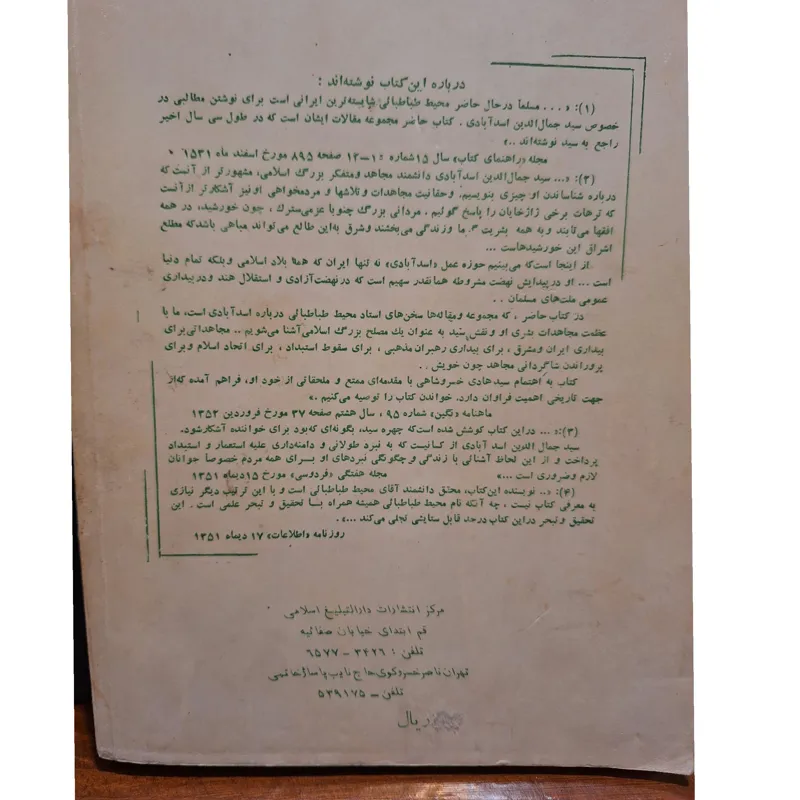 درباره این کتاب نوشته‌اند :
(۱): « . . . مسلماً در حال حاضر محیط طباطبائی شایسته‌ترین ایرانی است برای نوشتن مطالبی در
خصوص سید جمال‌الدین اسدآبادی . کتاب حاضر مجموعه مقالات ایشان است که در طول سی سال اخیر
راجع به سید نوشته‌اند ..»
مجله «راهنمای کتاب» سال ۱۵ شماره ۱۰-۱۲ صفحه ۸۹۵ مورخ اسفند ماه ۱۳۵۶
(۲): «... سید جمال‌الدین اسدآبادی دانشمند مجاهد ومتفکر بزرگ اسلامی، مشهورتر از آنست که
درباره شناساندن او چیزی بنویسیم. وحقانیت مجاهدات وتلاشها و مردمخواهی او نیز آشکارتر از آنست
که ترهات برخی ژاژخایان را پاسخ گوئیم . مردانی بزرگ چنو با عزمی سترك ، چون خورشید، در همه
افقها می‌تابند و به همه بشریت گرما وزندگی می‌بخشند وشرق به‌این طالع می‌تواند مباهی باشدکه مطلع
اشراق این خورشیدهاست ...
از اینجا است‌که می‌بینیم حوزه عمل «اسدآبادی» نه تنها ایران که همه بلاد اسلامی وبلکه تمام دنیا
است ... او در پیدایش نهضت مشروطه همانقدر سهیم است که در نهضت‌آزادی و استقلال هند ودر بیداری
عمومی ملت‌های مسلمان . .
در کتاب حاضر ، که مجموعه ومقاله‌ها سخن‌های استاد محیط طباطبائی درباره اسدآبادی است، ما با
عظمت مجاهدات بشری او و نقش سید به عنوان یك مصلح بزرگ اسلامی‌آشنا می‌شویم .. مجاهداتی‌برای
بیداری ایران ومشرق ، برای بیداری رهبران مذهبی ، برای سقوط استبداد ، برای اتحاد اسلام وبرای
پروراندن شاگردانی مجاهد چون خویش . .
کتاب به اهتمام سید هادی خسروشاهی با مقدمه‌ای ممتع و ملحقاتی از خود او، فراهم آمده که‌از
جهت تاریخی اهمیت فراوان دارد. خواندن کتاب را توصیه می‌کنیم .»
ماهنامه «نگین» شماره ۹۵ ، سال هشتم صفحه ۳۷ مورخ فروردین ۱۳۵۲
(۳): «... در این کتاب کوشش شده است‌که چهره سید، بگونه‌ای که‌بود برای خواننده آشکارشود.
سید جمال الدین اسد آبادی از کسانیست که به نبرد طولانی و دامنه‌داری علیه استعمار و استبداد
پرداخت و از این لحاظ آشنائی با زندگی و چگونگی نبردهای او بـرای همه مردم خصوصاً جوانان
لازم وضروری است ...» مجله هفتگی «فردوسی» مورخ ۱۵ دیماه ۱۳۵۱
(۴): «.. نویسنده این‌کتاب، محقق دانشمند آقای محیط طباطبائی است و با این ترتیب دیگر نیازی
به معرفی کتاب نیست . چه آنکه نام محیط طباطبائی همیشه همراه بـا تحقیق و تبحر علمی است . این
تحقیق و تبحر در این کتاب در حد قابل ستایشی تجلی می‌کند ...» .
روزنامه «اطلاعات» ۱۷ دیماه ۱۳۵۱
مرکز انتشارات دارالتبلیغ اسلامی
قم ابتدای خیابان صفائیه
تلفن : ۳۴۲۶ – ۶۵۷۷
تهران ناصرخسرو کوی حاج نایب پاساژ خاتمی
تلفن – ۵۳۹۱۷۵
ریال